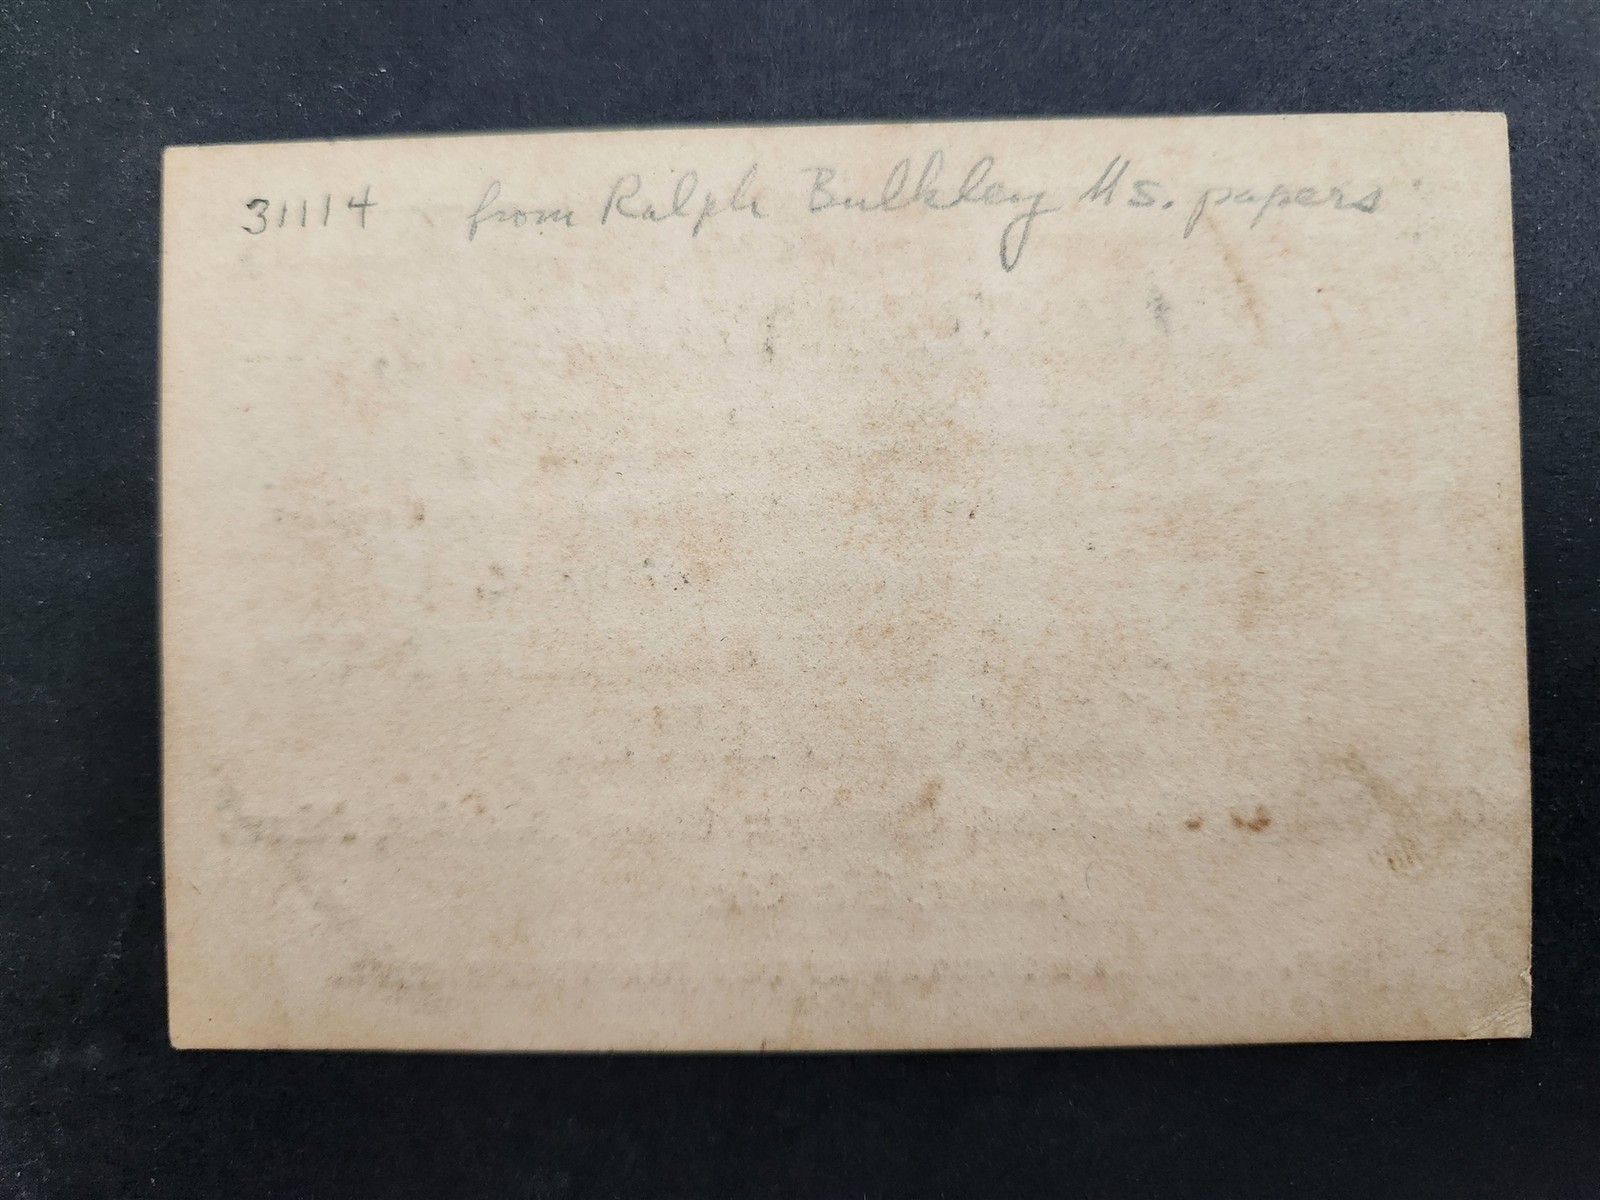 31114 from Ralph Bulkley Ms. papers